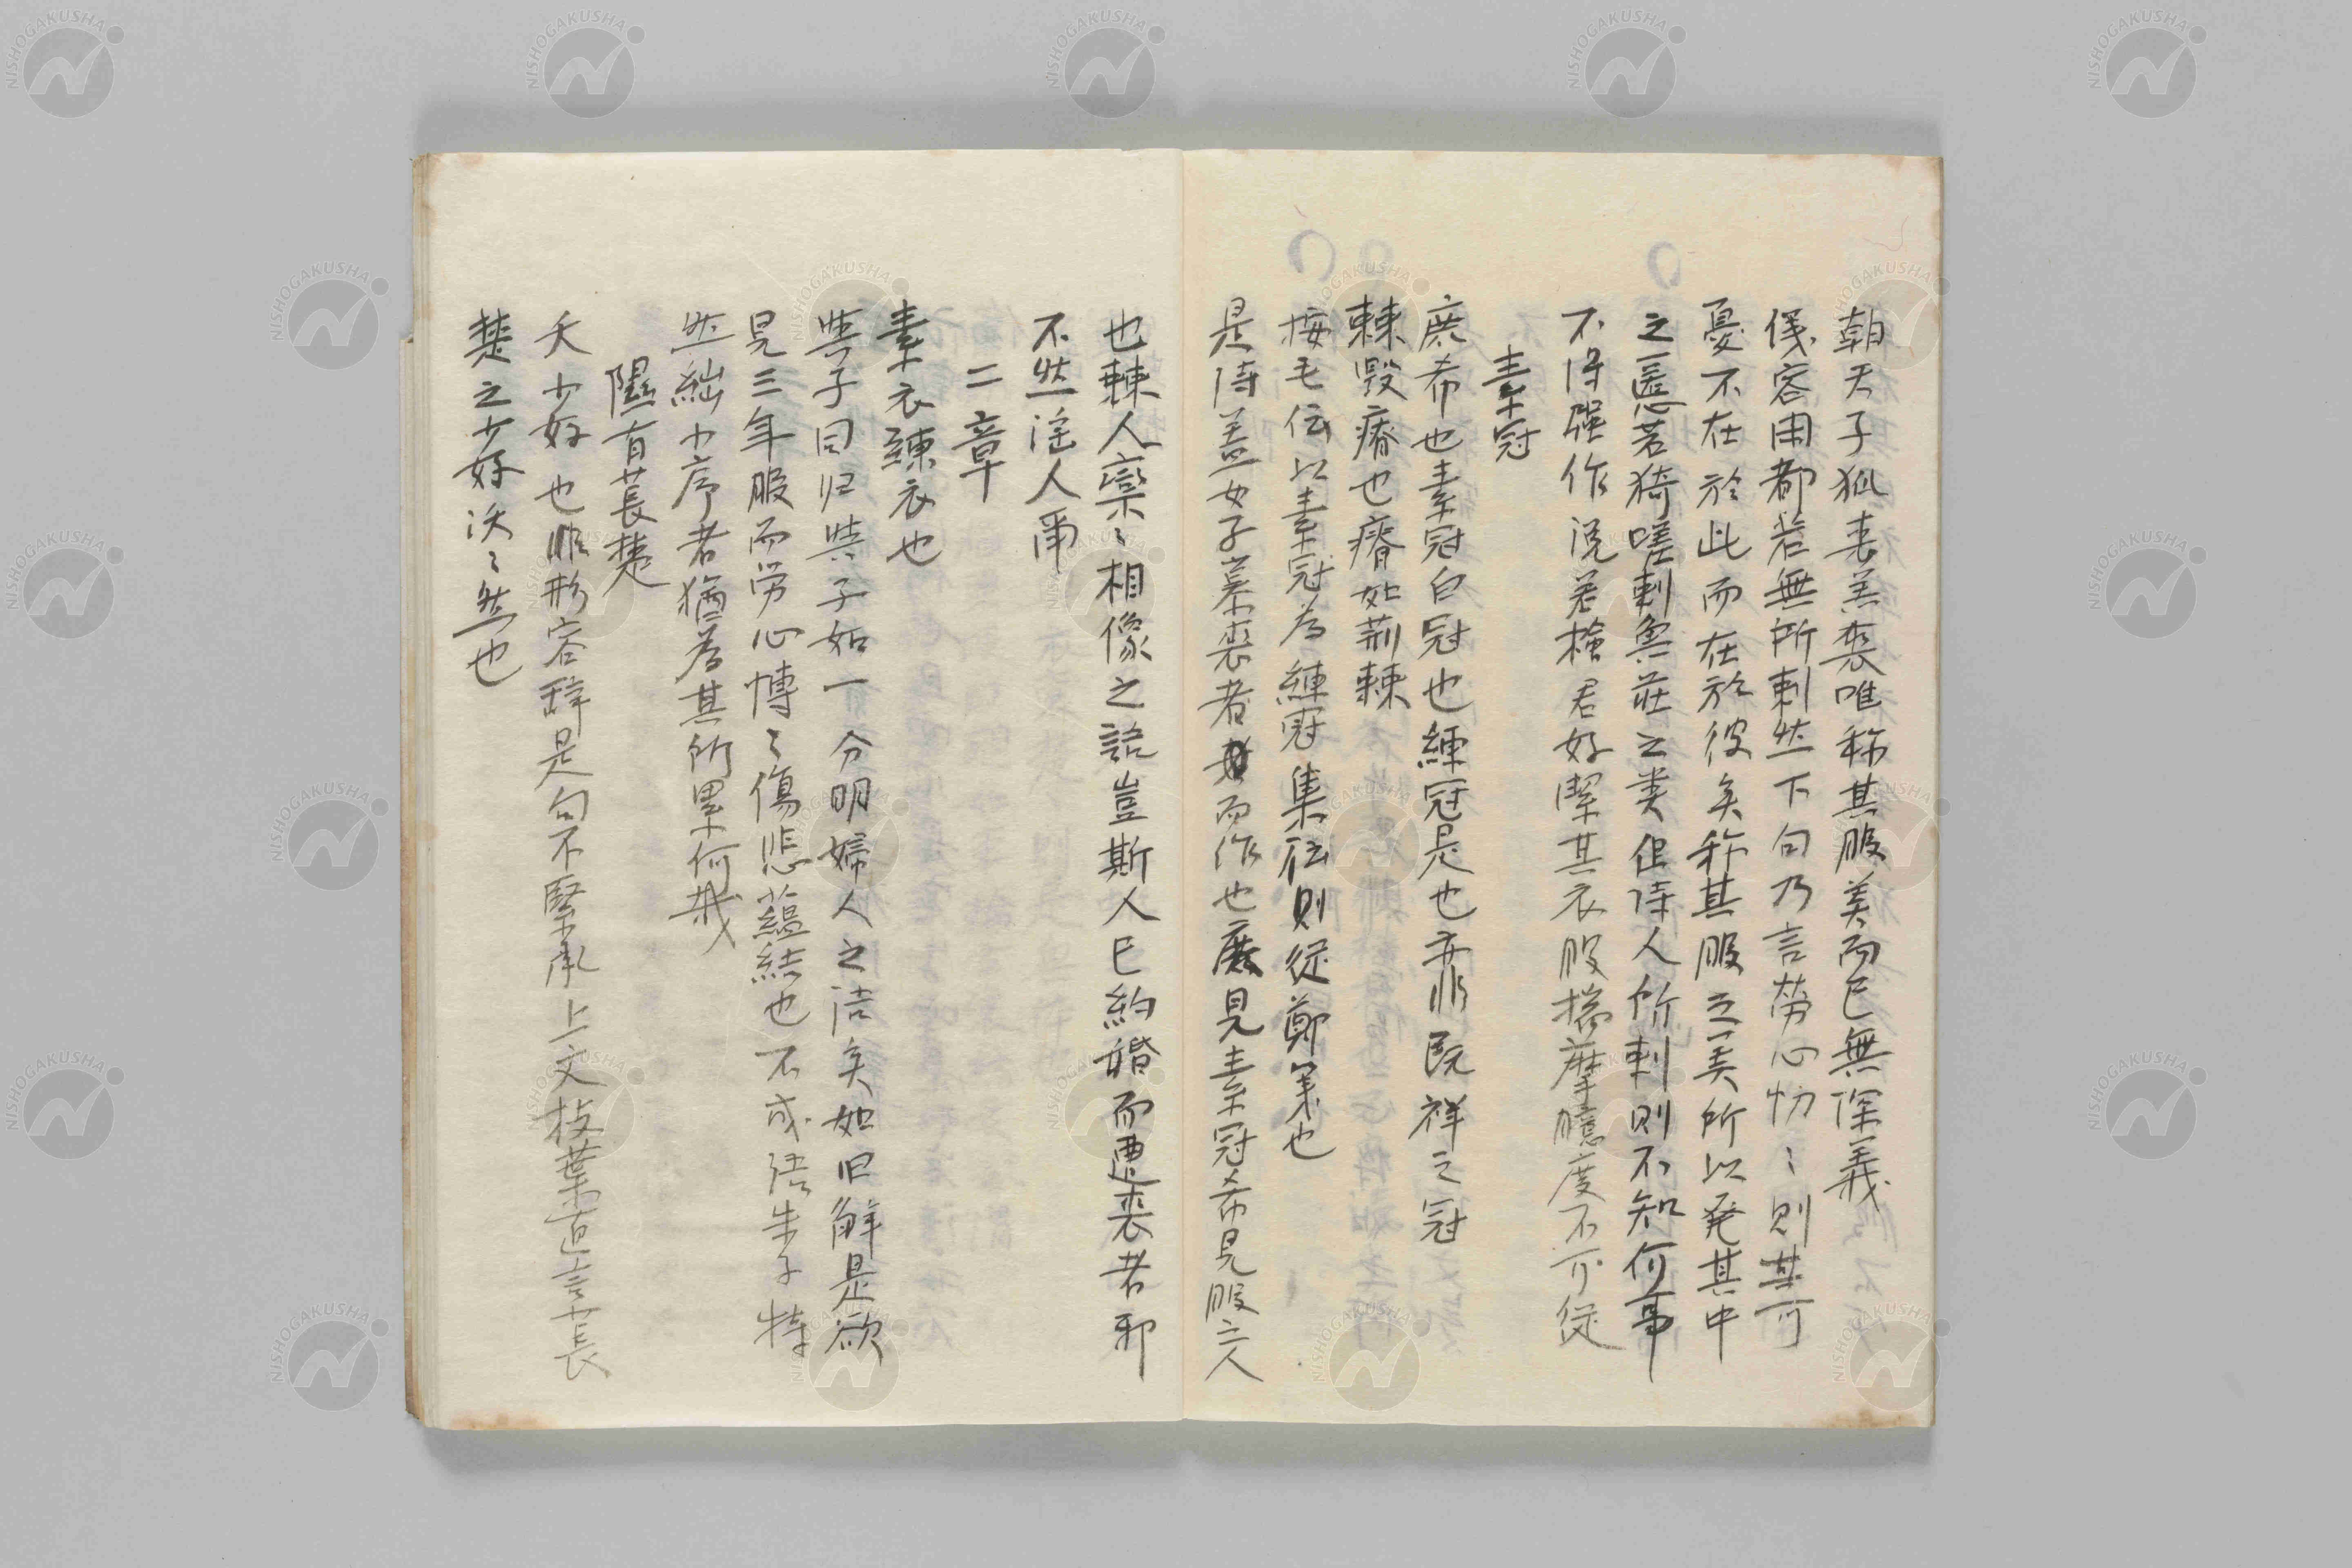 朝天子狐裘羔裘唯称其服美而已無深義
儀容困都若無所刺然下句乃言労心忉〻則其可
憂不在於此而在於彼矣称其服之美所以発其中
之慝若猗嗟刺魯荘之類但詩人所刺則不知何事
不得強作説若檜君好潔其衣服揣摩臆度不可従
素冠
庶希也素冠白冠也練冠是也亦非既祥之冠
棘毀瘠也瘠如荊棘
按毛伝以素冠為練冠集伝則従鄭箋也
是詩蓋女子慕喪者而作也庶見素冠希見服之人
也棘人欒〻相像之語豈斯人已約婚而遭喪者邪
不然淫人爾
二章
素衣練衣也
与子同帰与子如一分明婦人之語矣如旧解是欲
見三年服而労心慱〻傷悲蘊結也不成語朱子特
然絀小序者猶為其所累何哉
隰有萇楚
夭少好也非形容辞是句不緊承上文枝葉直言萇
楚之少好沃〻然也